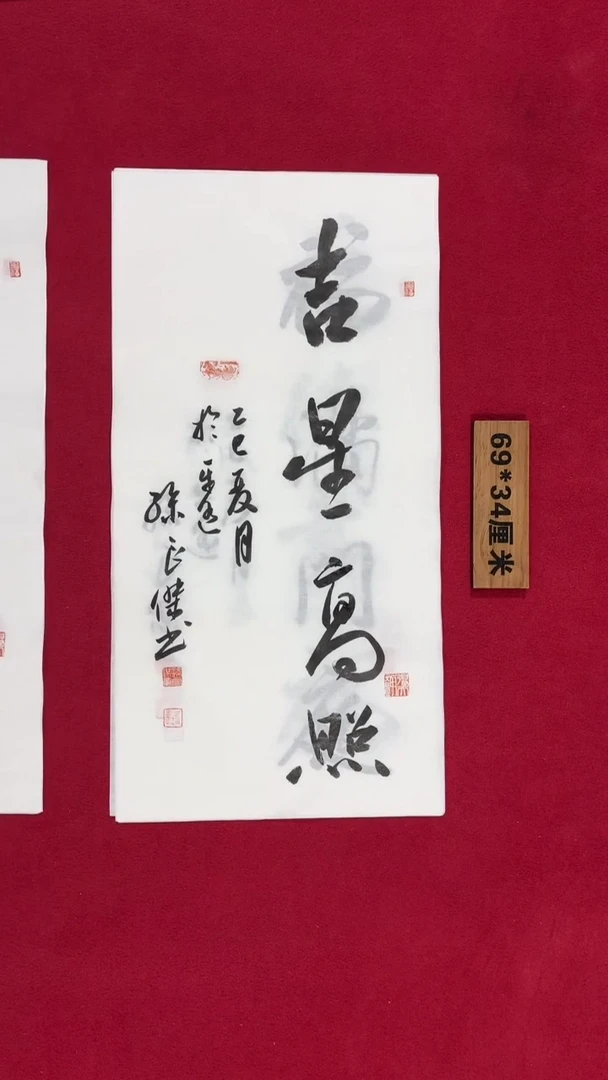 吉星高照
乙巳夏月
於
孫良傑书
69*34厘米